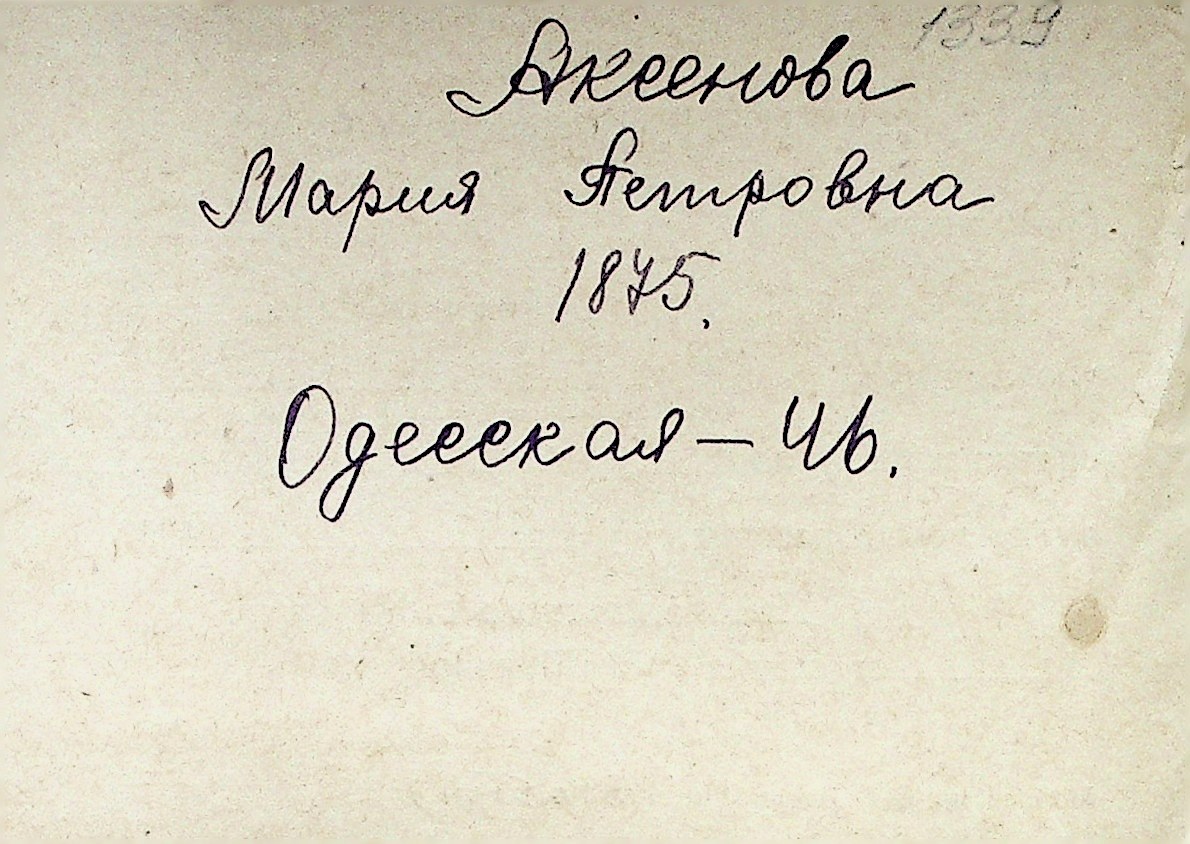 1339
Аксенова
Мария Петровна
1875.
Одесская – 46.